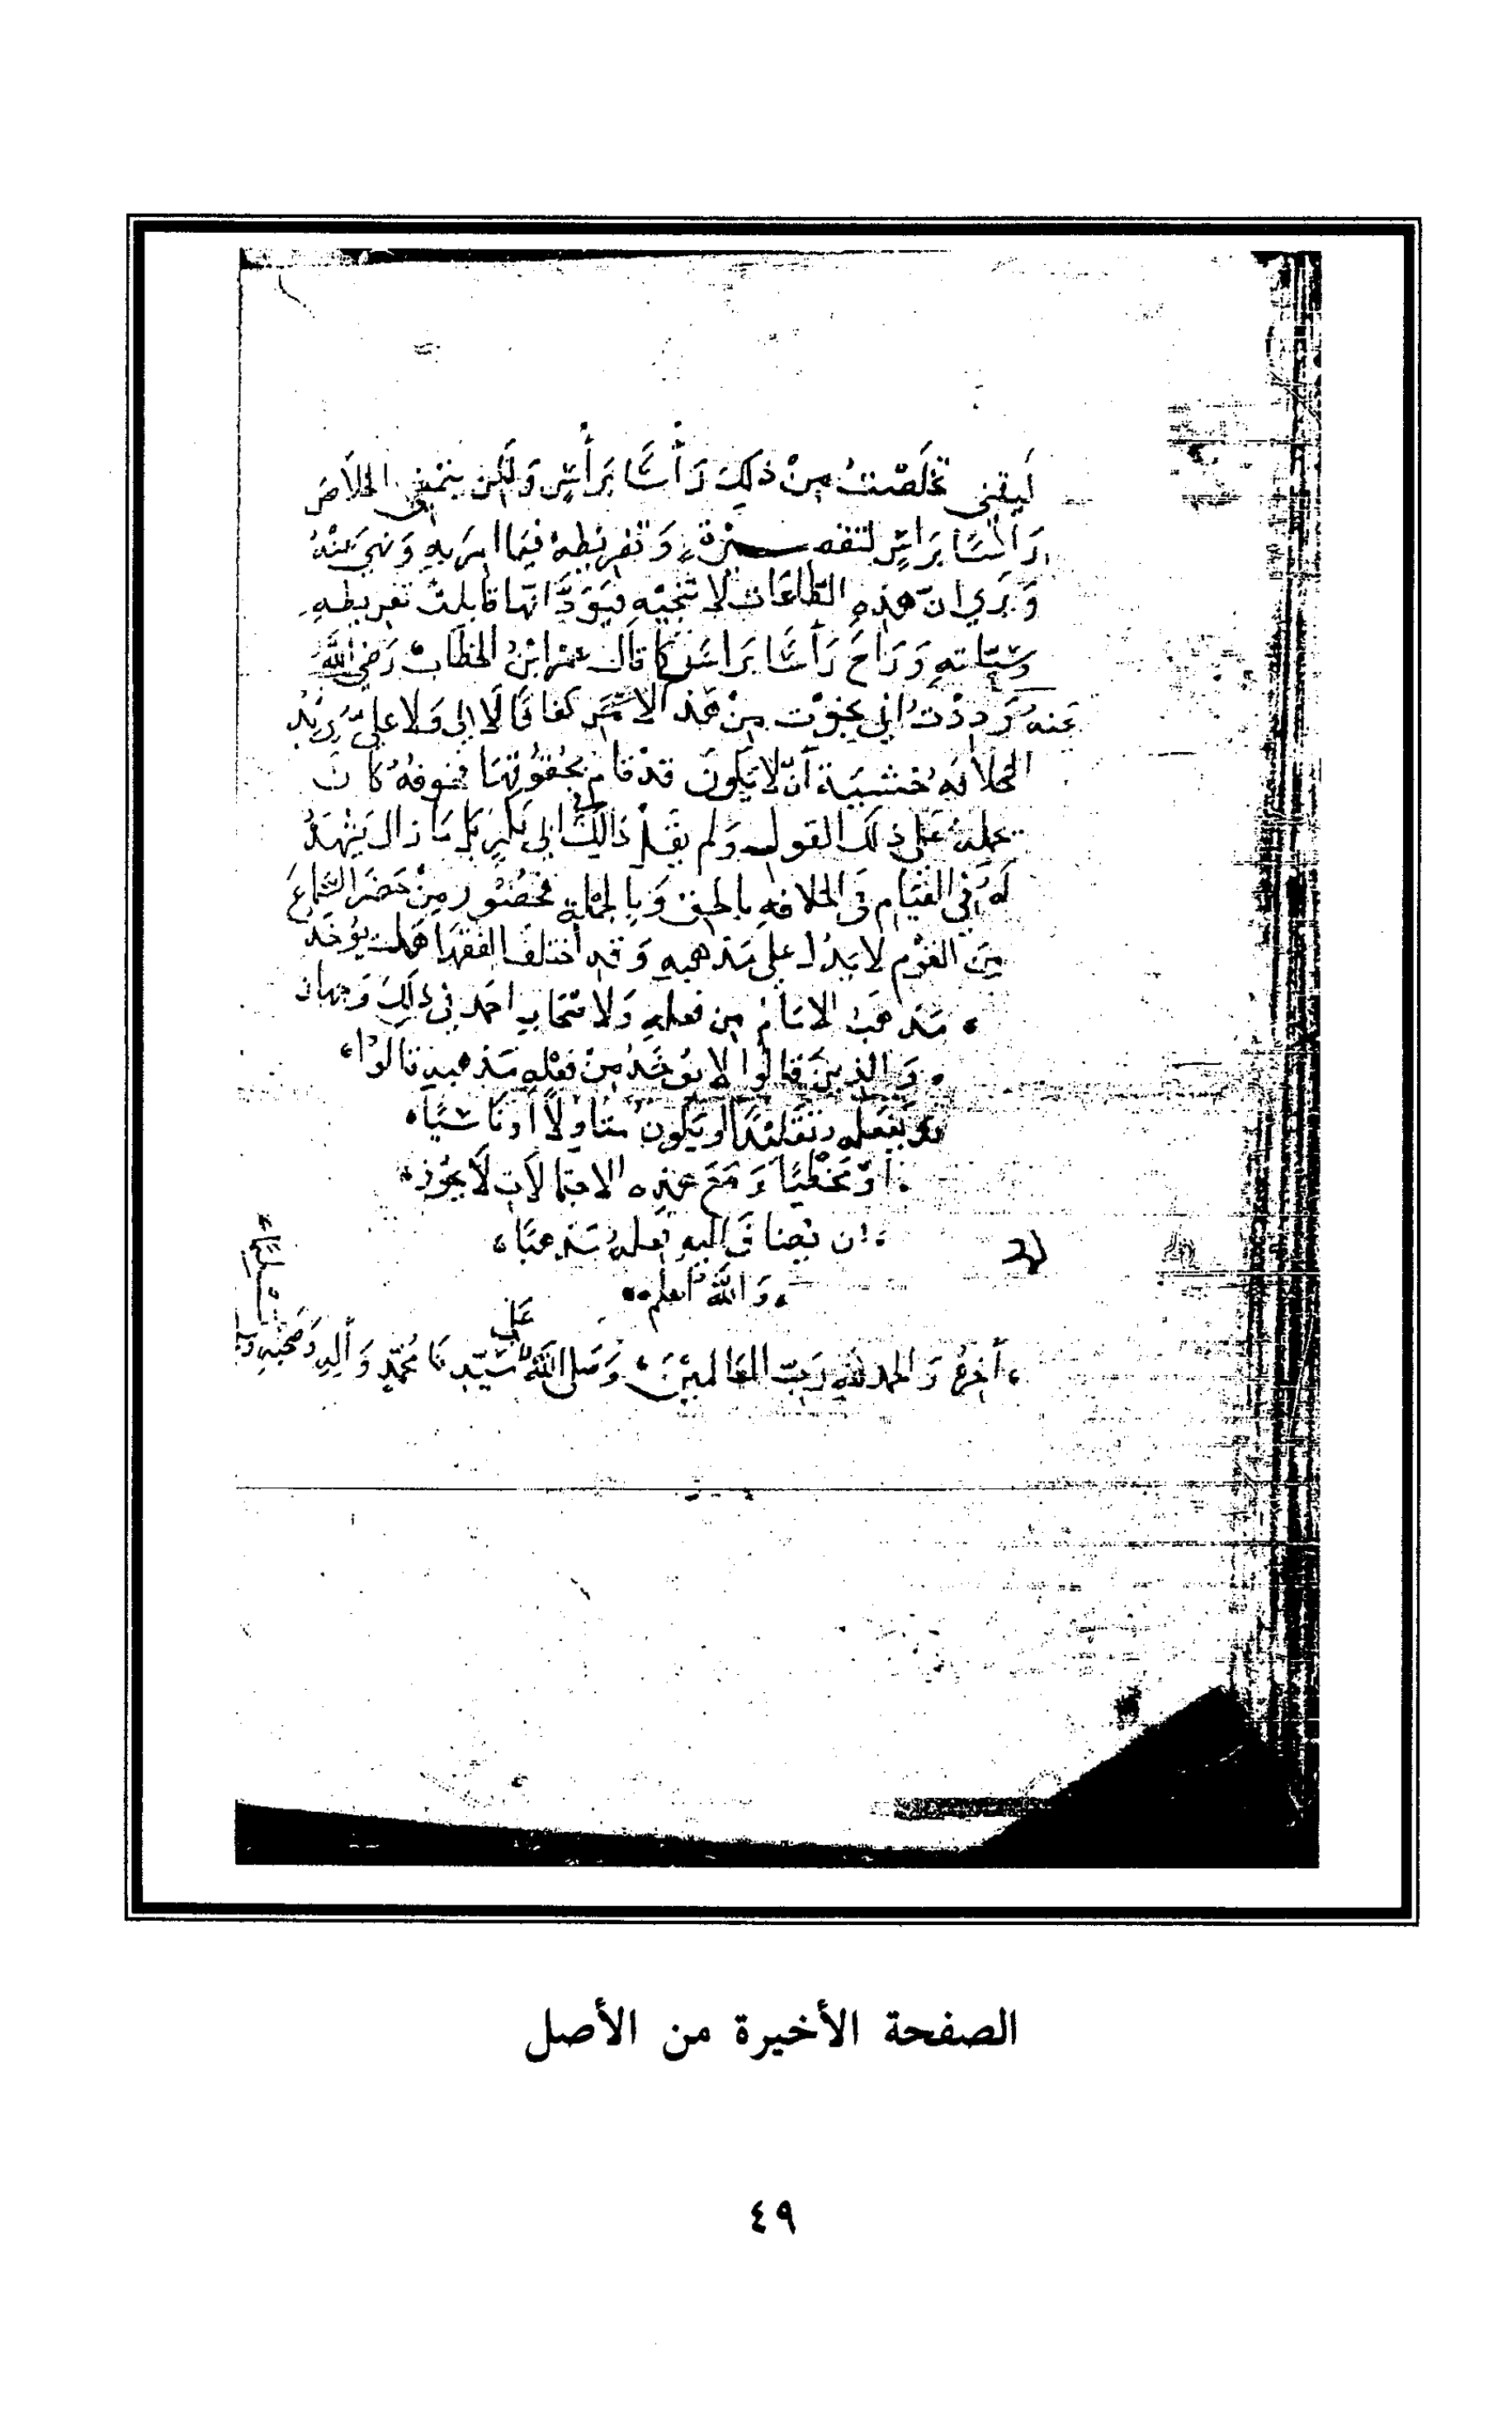 ليتني تخلصت من ذلك رَأسًا بِرَأسٍ وَلكن يتمنى الخلاصَ
رَأسًا بِرَاسٍ لتقصيره وَتفريطه فيما امر به وَنهي عَنْهُ
وَيَرى ان هَذِهِ الطاعَات لا تنجيه فيَودّ انها قابلت تفريطه
وسيّاته وَرَاحَ رَأسًا بَراس كما قال عمر ابن الخطاب رَضي الله
عَنه وَدِدْت اني نجوْت من هَذا الامر كفافا لا لي وَلا علي يُريد
الخلافه خشيَة أنْ لا يكون قدْ قام بحقوقها فخوفه كان
يحمله عَلى ذلك القول وَلم يقل ذالك ابي بَكر بَل مَا زال يَشهدُ
لَهُ في القيام في الخلافه بالحق وَبالجملة فحضور من حَضَر السّماعَ
مِنَ القوْم لا يَدُل على مَذهبه وَقد أختلف الفقها هل يؤخَذ
مَذهَب الامَام من فعله وَلاصحَاب احمد في ذلك وَجهان
وَالذينَ قالوا لا يؤخَذ مِنْ فعْله مَذهبه قالوا
يَفعله تقليدًا أو يكون متأولاً أو ناسيًا
أوْ مخطيًا وَمَعَ هذه الاحتمالات لاَ يجوز
ان يضاف اليه فعله مَذهبًا
وَالله أعلم
أخرهُ وَالحمد لله رَبّ العَالمينَ وَصَلى الله عَلى سَيّدنا مُحمّدٍ وَألِهِ وَصَحْبِهِ وَسلم
الصفحة الأخيرة من الأصل
٤٩